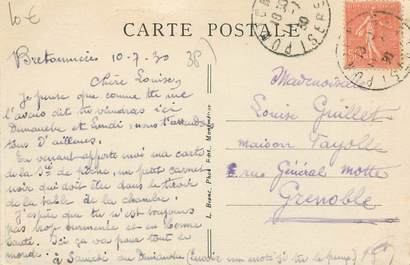 10 €
CARTE POSTALE
Bretonnières 10-7-30
38
Chère Louise,
Je pense que comme tu me
l'avais dit tu viendras ici
Dimanche et Lundi; nous t'attendons
tous D'ailleurs.
En venant apporte moi ma carte
de la Sté de pêche, un petit carnet
noir qui doit être dans le tiroir
de la table de la chambre.
J'espère que tu n'est toujours
pas trop surmenée et en bonne
Santé. Ici ça va pour tout le
monde.
à Samedi ou Dimanche (
Mademoiselle
Louise Guillet
maison Fayolle
rue Général Motte
Grenoble